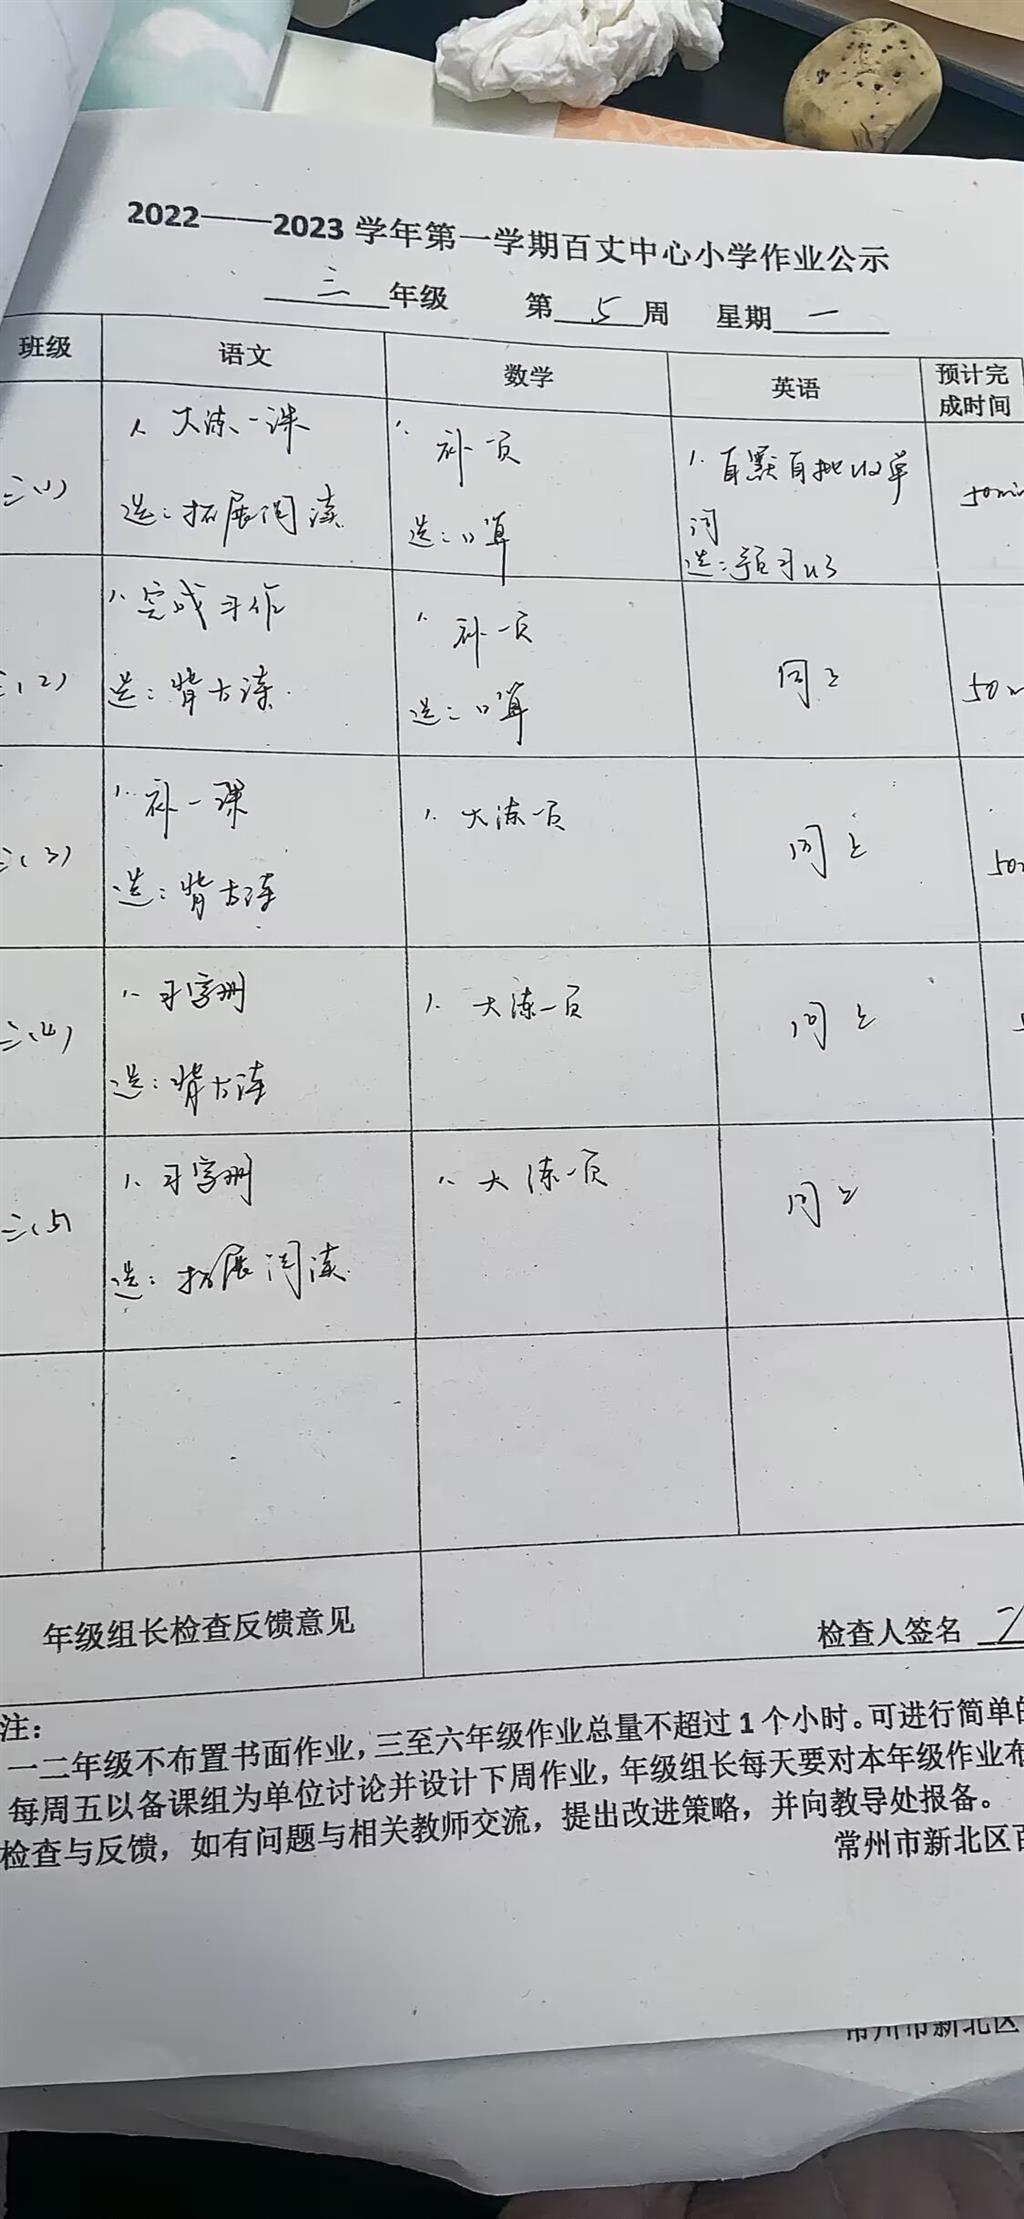 2022——2023 学年第一学期百丈中心小学作业公示
三年级 第5周 星期一
班级 语文 数学 英语 预计完成时间
三(1)
1. 大练一课
选:拓展阅读
1. 补一页
选:口算
1. 自默自批U2单词
选:预习U3
50min
三(2)
1. 完成习作
选:背古诗
1. 补一页
选:口算
同上
50m
三(3)
1. 补一课
选:背古诗
1. 大练一页
同上
50
三(4)
1. 习字册
选:背古诗
1. 大练一页
同上
三(5)
1. 习字册
选:拓展阅读
1. 大练一页
同上
年级组长检查反馈意见
检查人签名
注:
一二年级不布置书面作业,三至六年级作业总量不超过 1 个小时。可进行简单的
每周五以备课组为单位讨论并设计下周作业,年级组长每天要对本年级作业布
检查与反馈,如有问题与相关教师交流,提出改进策略,并向教导处报备。
常州市新北区百
常州市新北区